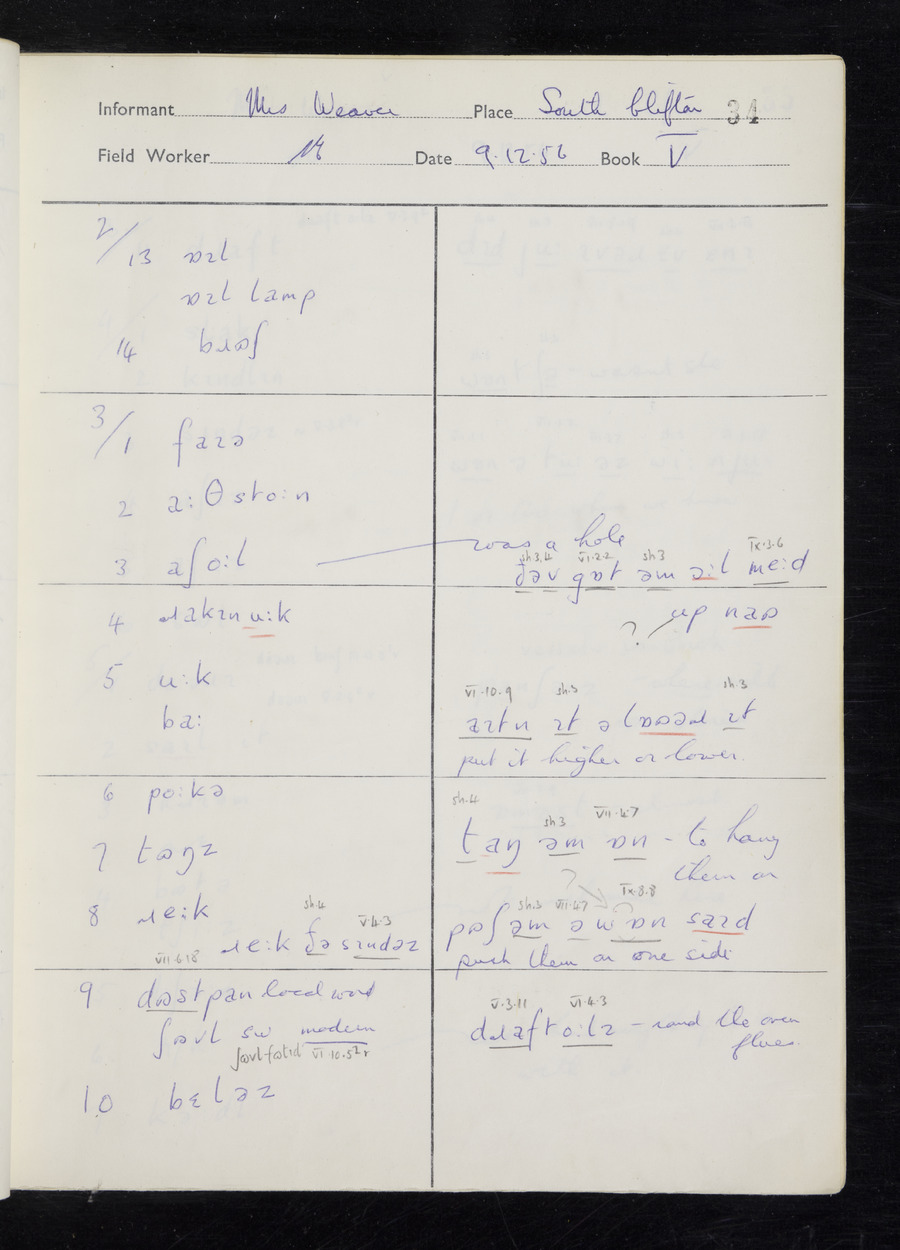 Informant Mrs Weaver Place South Clifton 34
Field Worker Date 9.12.56 Book V
2/13 ɒɪl
ɒɪl lamp
14 bɹɷʃ
3/1 faɪə
2 a:θsto:n
3 aʃo:l
was a hole
sh 3.4 VI.2.2 sh 3 IX.3.6
ðəv gɒt əm ə:l me:d
4 ɹakɪnu:k
up nɑɷ
?
5 u:k
ba:
VI.10.9 sh.3 sh.3
aɪtn ɪt ə lɷəɹ ɪt
put it higher or lower.
6 po:kə
7 tɒŋz
sh.4 sh 3 VII.4.7
t aŋ əm ɒn - to hang
them on
?
8 ɹe:k
sh.4 V.4.3
ɹe:k ðə sɪndəz
sh.3 VII.4.7 IX.8.8
pɷʃ əm ə wɒn saɪd
push them on one side
VII.6.18
9 dɷstpan local word
ʃɷvl sw modern
ʃɷvl-fɷlɪd VI.10.5²r
V.3.11 VI.4.3
dɹaft o:lz - round the oven
flues.
10 bɛləz